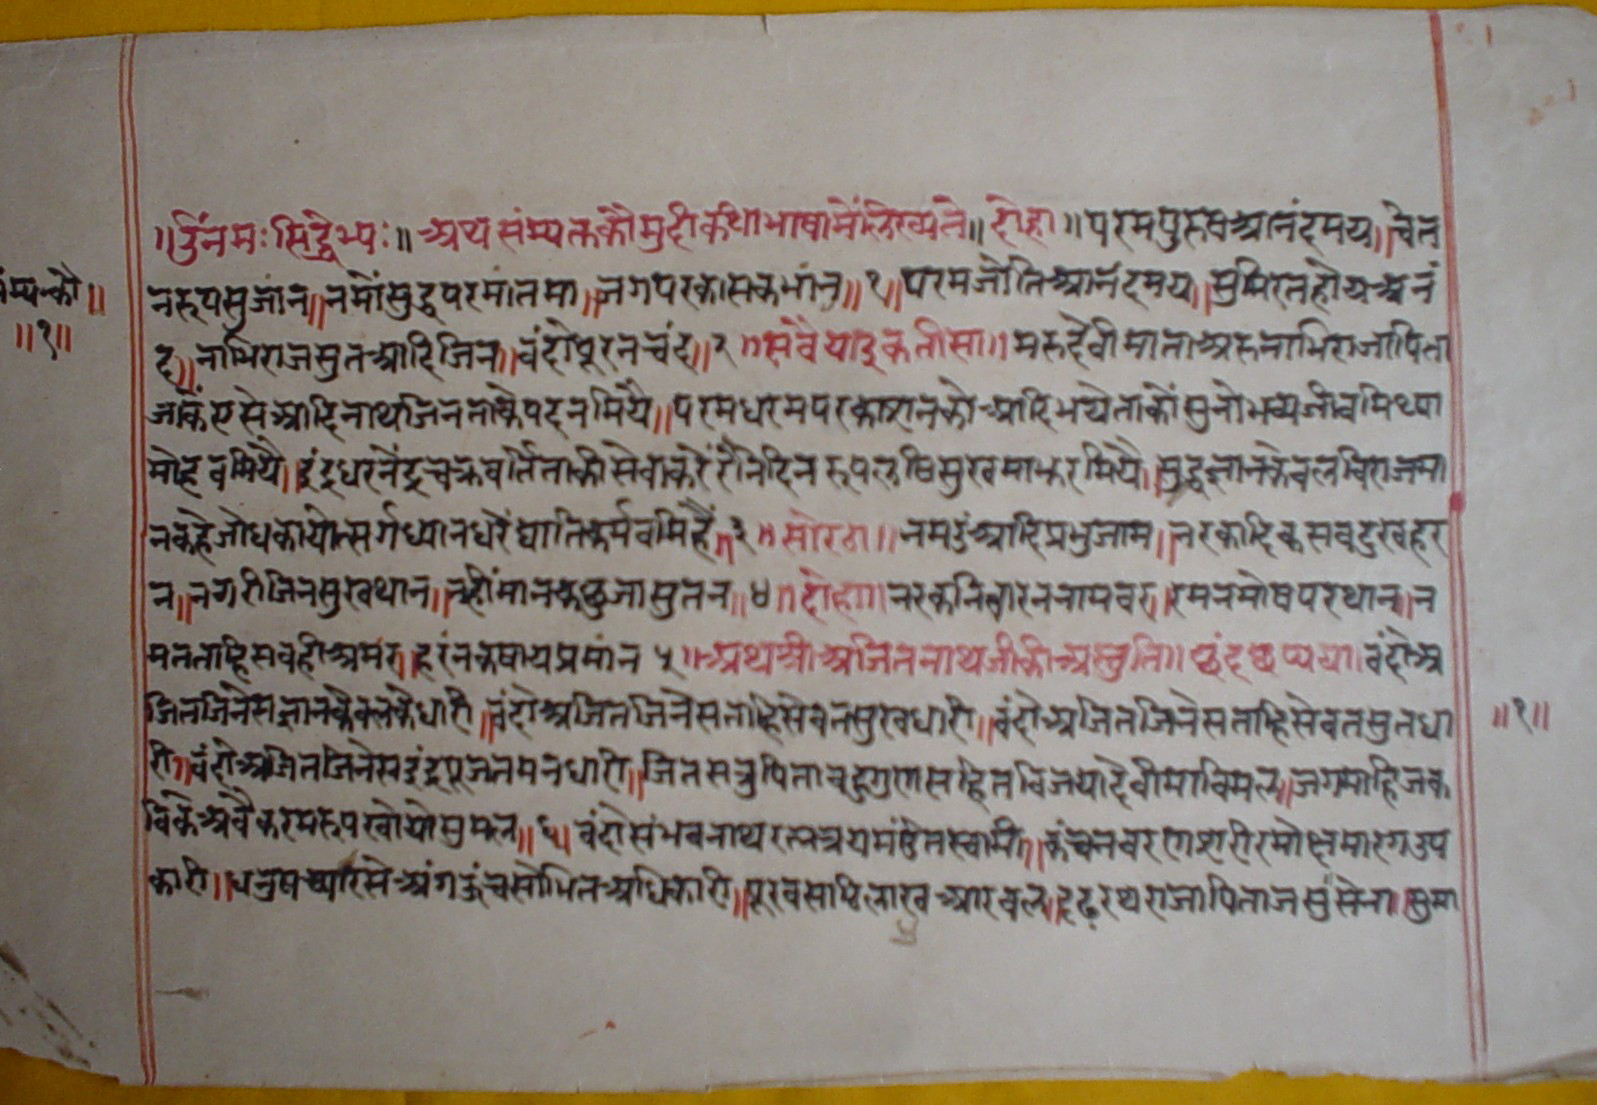 ॥ॐनमः सिद्धेभ्यः॥ अथ संम्यक्तकौमुदीकथाभाषामेंलिख्यते॥ दोहा॥ परमपुरुषआनंदमय॥चेत
नरूपसुजांन॥नमौंसुद्धपरमांतमा॥जगपरकासकभांन॥१॥परमजोतिआनंदमय॥सुमिरतहोयअनं
संम्य॰कौ॥
॥१॥
द॥नाभिराजसुतआदिजिन॥वंदोपूरनचंद॥२॥सवैयाइकतीसा॥मरुदेवीमाताअरुनाभिराजापिता
जाकेंएसेआदिनाथजिनताकेपदनमियै॥परमधरमपरकाशनकोआदिभयेताकौंसुनोभव्यजीवमिथ्या
मोहवमियै॥इंद्रधरनेंद्रचक्रवर्तिताकीसेवाकरेंरैनिदिन सुखमाकरमियै॥सुद्धज्ञानकेवलविराजमा
नकहेजोधकायोत्सर्गध्यानधरैंघातिकर्मवमिहैं॥३॥सोरठा॥नमउंआदिप्रभुजाम॥नरकादिकसबदुखहर
न॥नगरीजिनसुखथान॥नहींमानकछुजासुतन॥४॥दोहा॥नरकनिवारननायवरु॥रमनमोषपरथान॥न
मतताहिसबहीअमरु॥हरंनकषायप्रमांन५॥अथश्रीअजितनाथजीकीअस्तुति॥छंदछप्पया॥वंदोअ
जितजिनेसज्ञानकेवलकेधारी॥वंदोअजितजिनेसताहिसेवतसुखधारी॥वंदोअजितजिनेसताहिसेवतसुतधा
॥१॥
री॥वंदोअजितजिनेसइंद्रपूजतमनधारी॥जितसत्रुपिताबहुगुणसहितविजयादेवीमाविमल॥जगमाहिजक
॥६॥वंदोसंभवनाथरत्नत्रयमंडितस्वामी॥कंचनवरणशरीरमोक्षमारगउप
कारी॥धनुषच्यारिसेअंगऊंचसोभितअधिकारी॥पूरवसाठिलाखआरवल॥दृढ़रथराजापिताजसुसेना॥सुमा